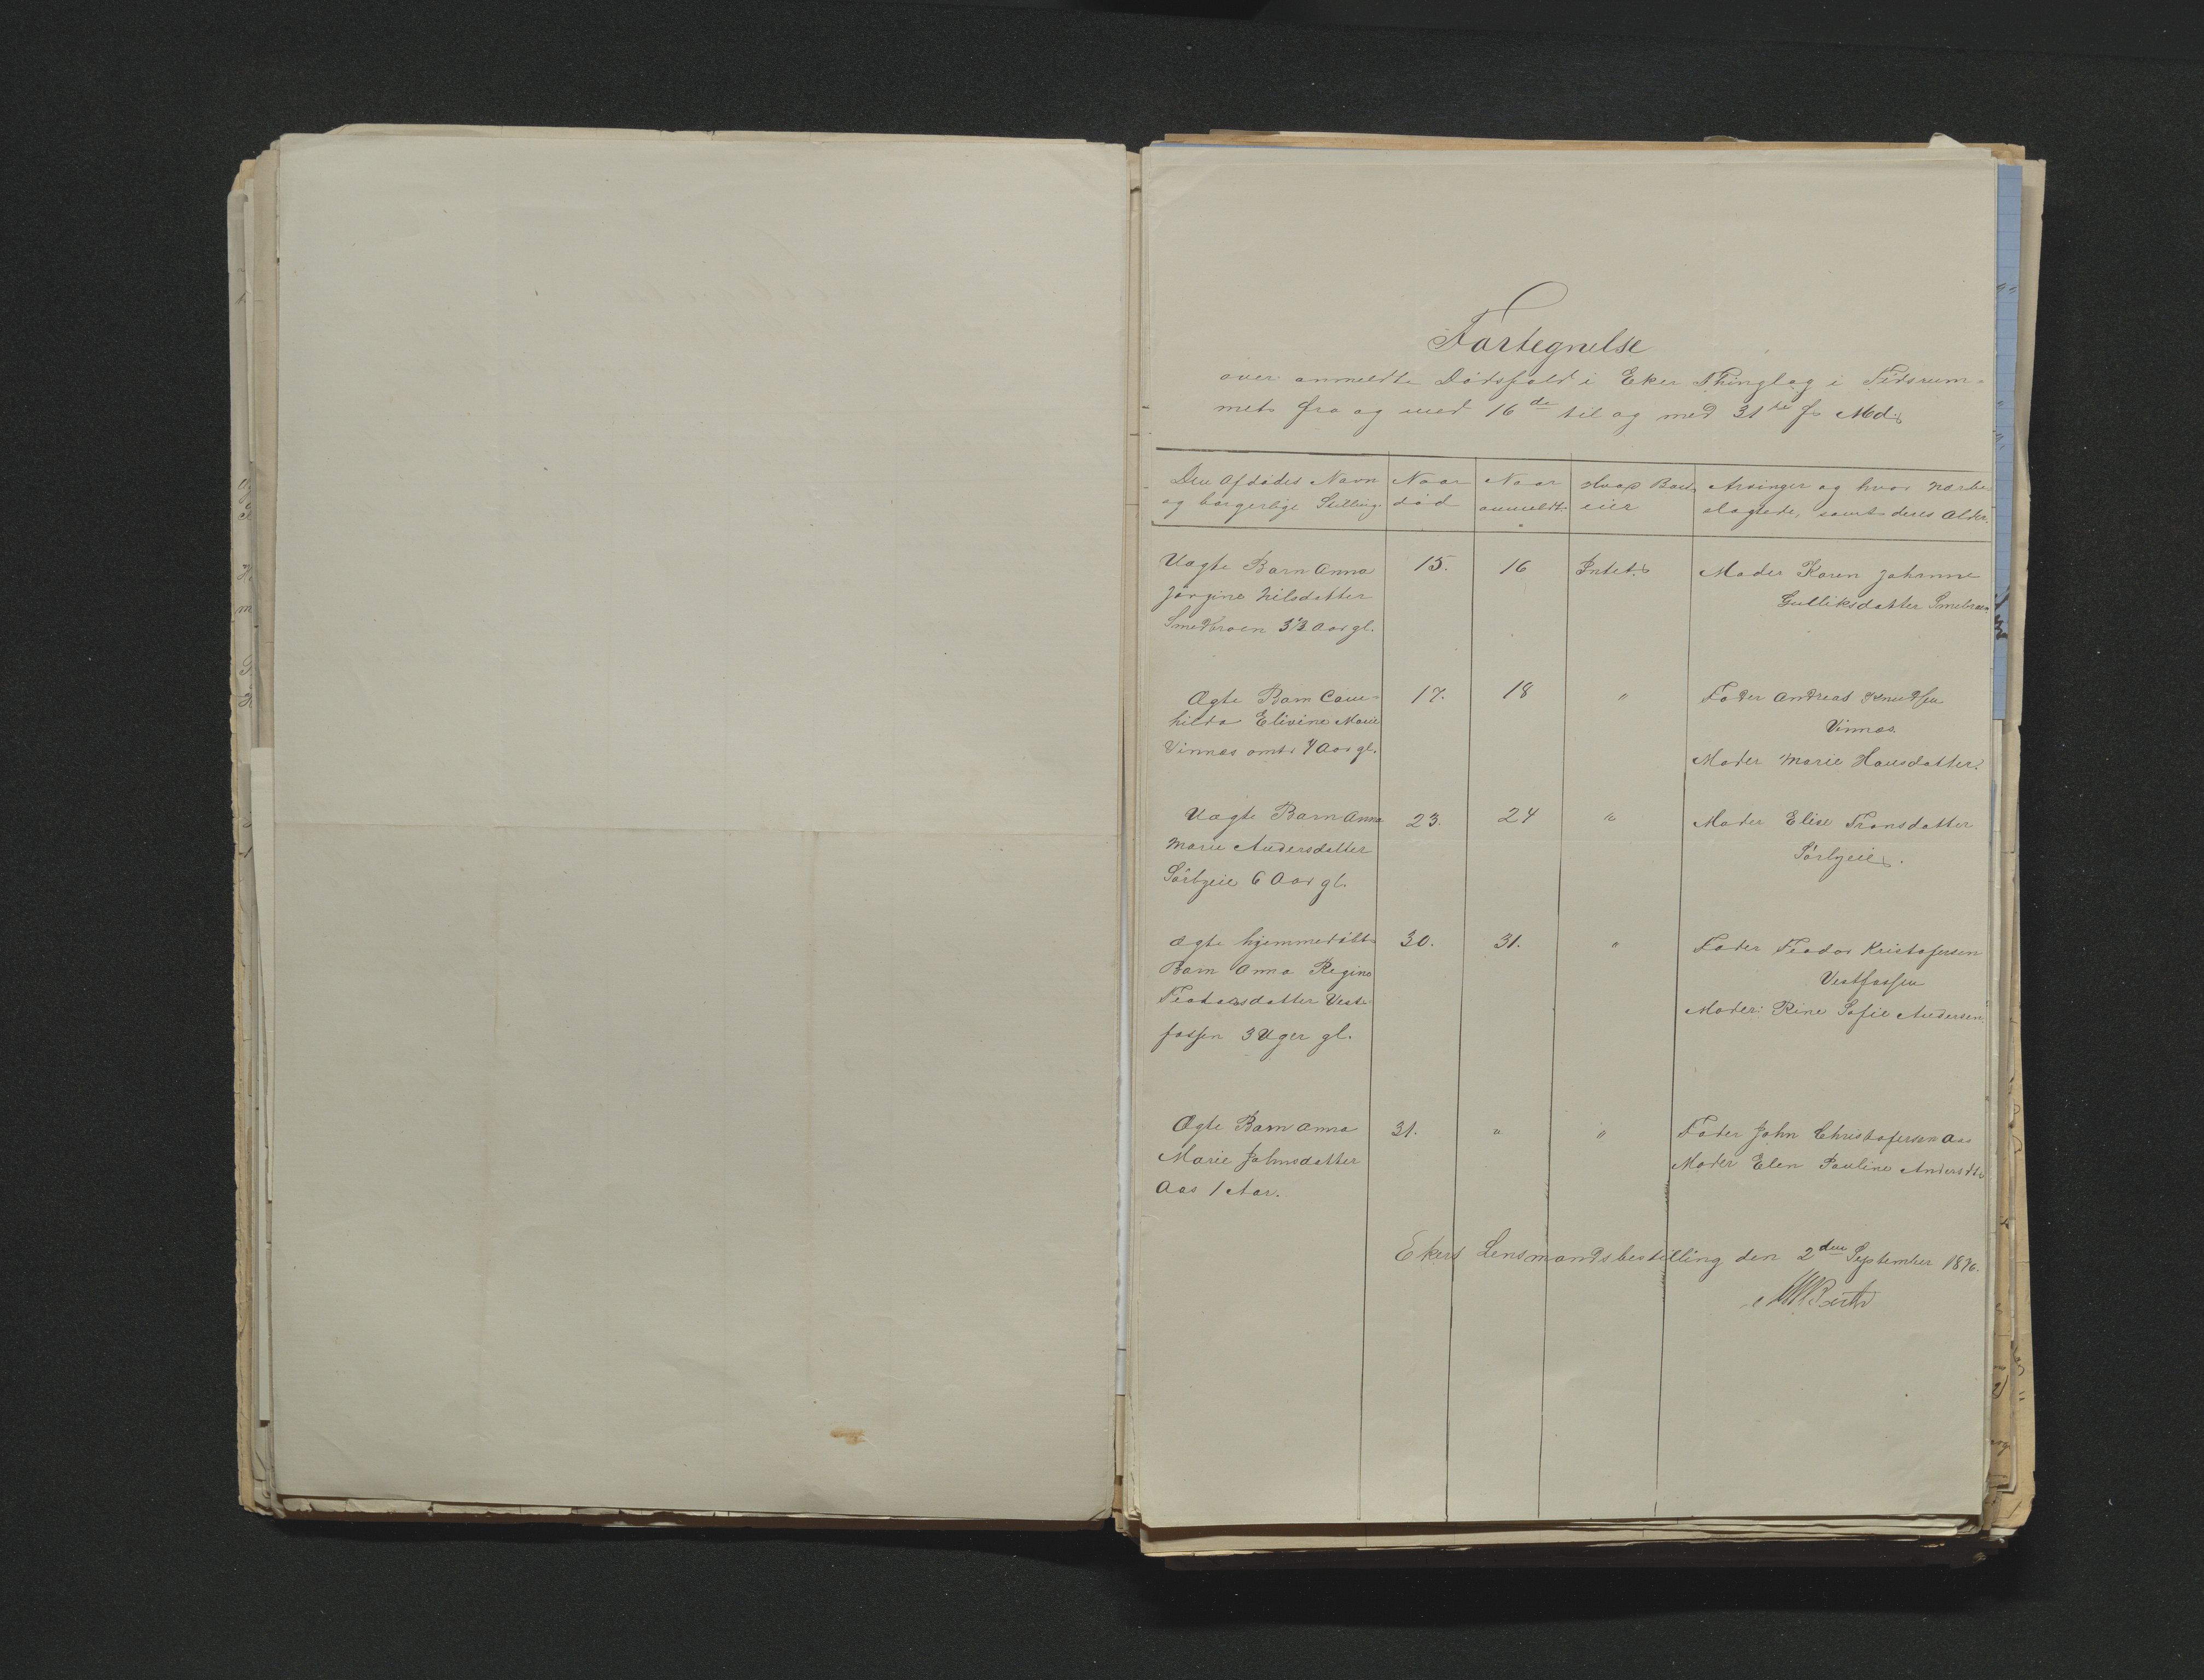 Fortegnelse
over anmeldte Dödsfald i Eker Thinglag i Tidsrum=
met fra og med 16de til og med 31te f. Md.
Den Afdödes Navn og borgerlige Stilling.
Naar död
Naar anmeldt.
Hvad Boet eier
Arvinger og hvor nærbe
slagtede, samt deres Alder.
Uægte Barn Anna 15. 16 Intet. Moder Karen Johanne
Jörgine Nilsdatter Gulliksdatter Smebraaen
Smedbraaen 3½ Aar gl.
Ægte Barn Cam= 17. 18 " Fader Andreas Knudsen
hilda Elivine Marie Vinnæs.
Vinnæs omtr 4 Aar gl. Moder Marie Hansdatter.
Uægte Barn Anna 23. 24 " Moder Elise Fransdatter
Marie Andersdatter Sörbyeie.
Sörbyeie 6 Aar gl.
Ægte hjemmedöbt 30. 31. " Fader Teodor Kristofersen
Barn Anna Regine Vestfossen
Teodorsdatter Vest= Moder: Rine Sofie Andersen.
fossen 3 Uger gl.
Ægte Barn Anna 31. " " Fader John Christofersen Aas
Marie Johnsdatter Moder Elen Pauline Andersdtr
Aas 1 Aar.
Ekers Lensmandsbestilling den 2den September 1896.